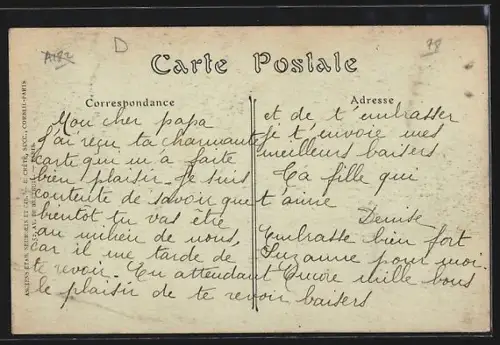 A182
D
78
Carte Postale
Correspondance
Adresse
Mon cher papa
J'ai reçu ta charmante
carte qui m'a faite
bien plaisir. Je suis
contente de savoir que
bientôt tu vas être
au milieu de nous,
car il me tarde de
te revoir. En attendant
le plaisir de te revoir
et de t'embrasser
je t'envoie mes
meilleurs baisers
Ta fille qui
t'aime
Denise
Embrasse bien fort
Suzanne pour moi.
Encore mille bons
baisers